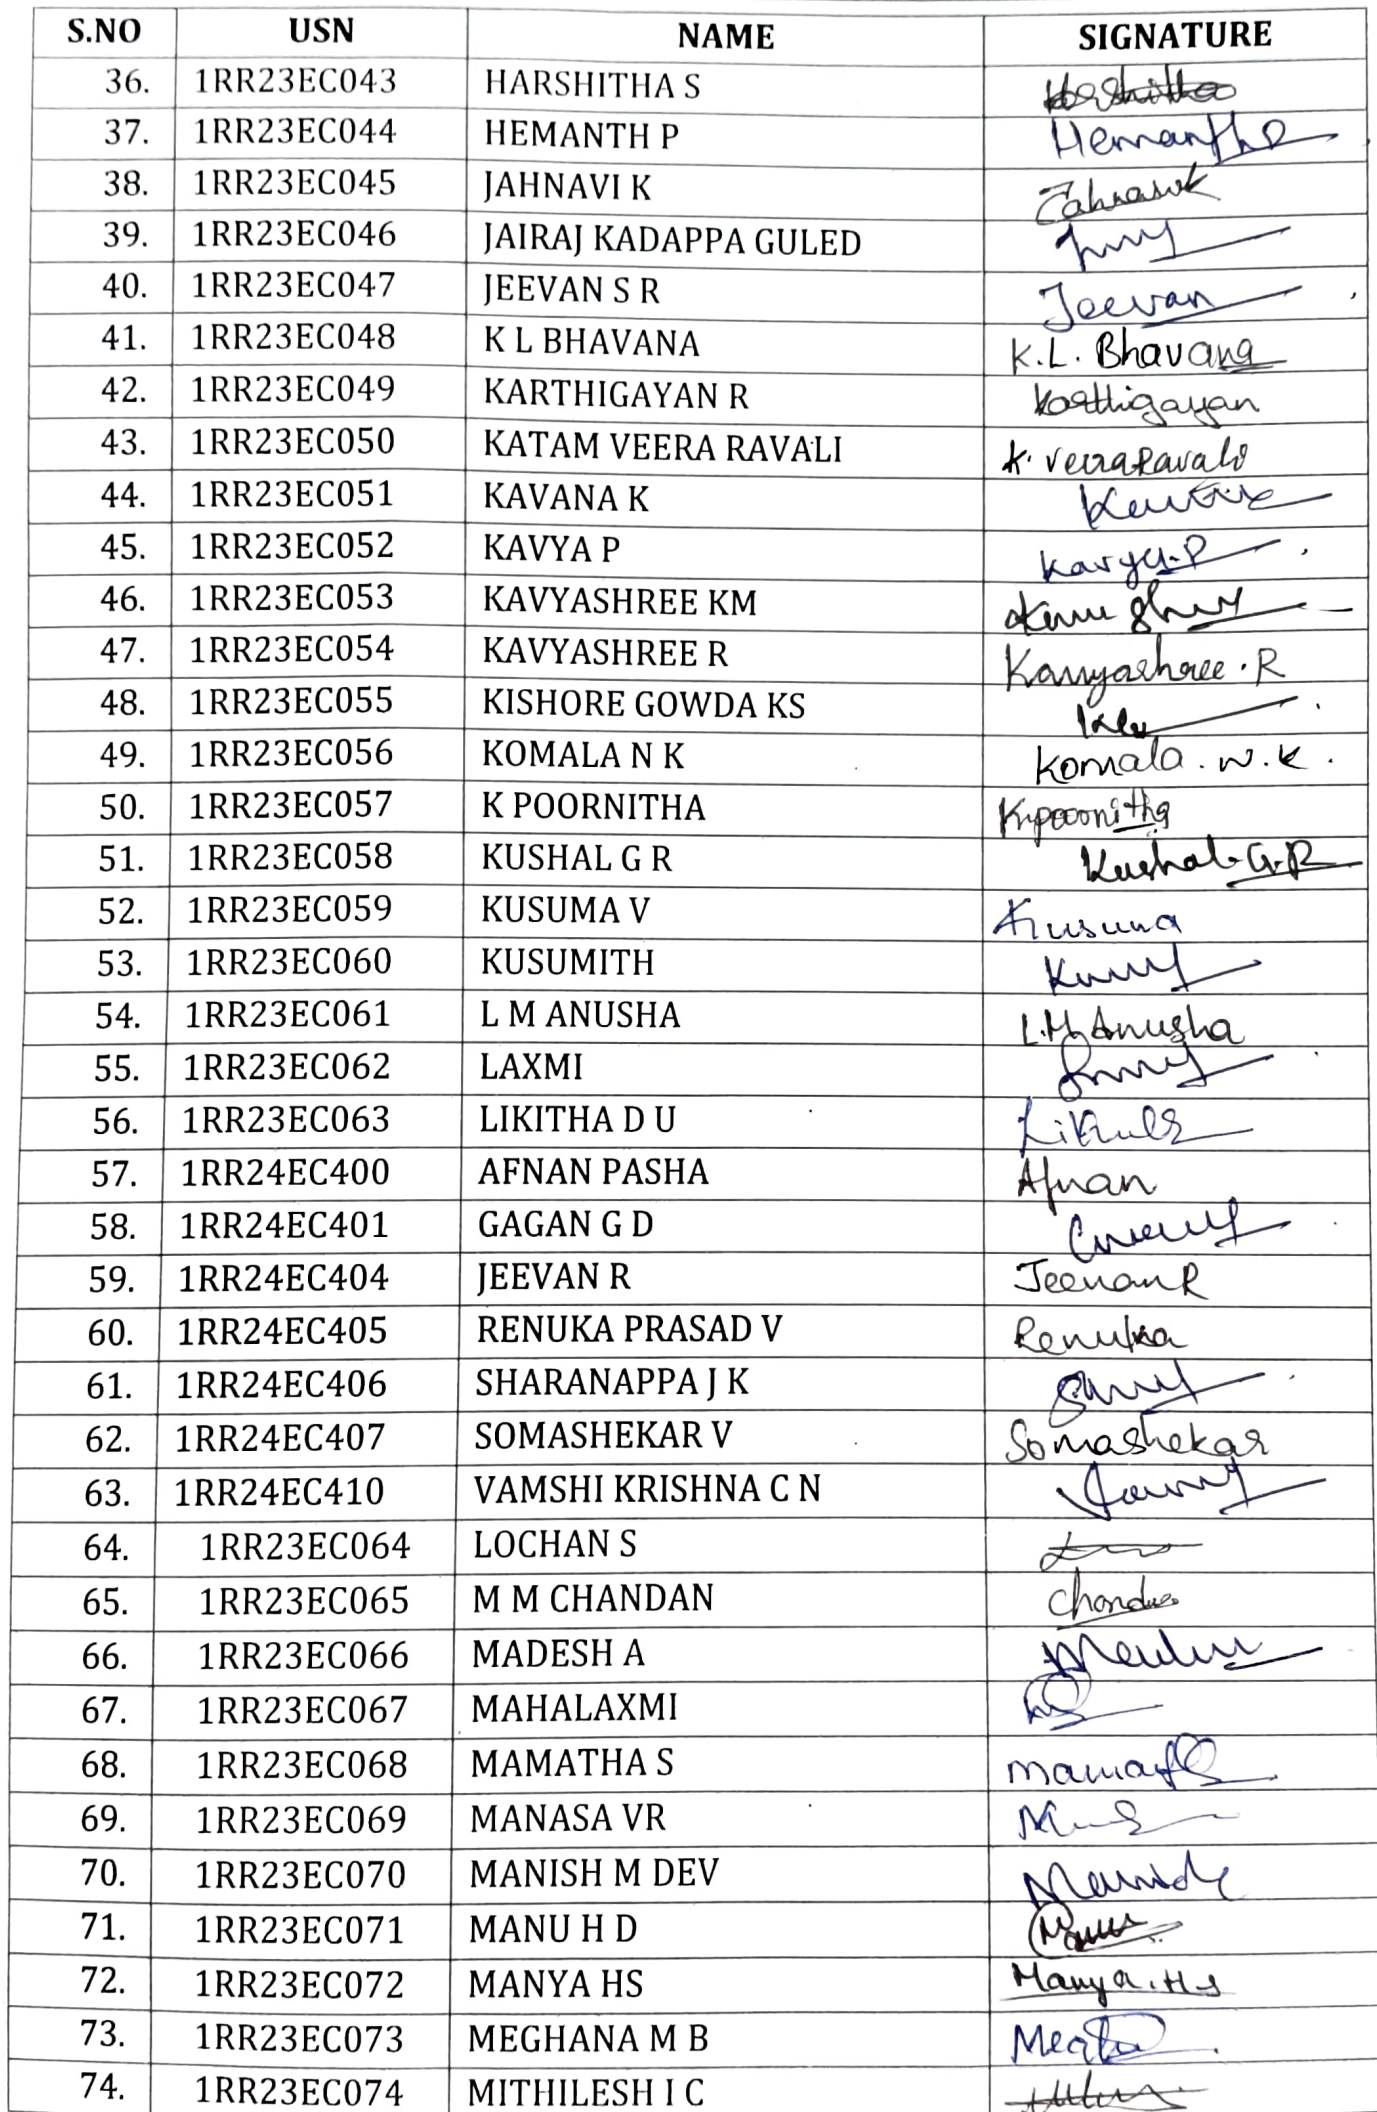 S.NO USN NAME SIGNATURE
36. 1RR23EC043 HARSHITHA S Harshitha
37. 1RR23EC044 HEMANTH P Hemanth P
38. 1RR23EC045 JAHNAVI K
39. 1RR23EC046 JAIRAJ KADAPPA GULED
40. 1RR23EC047 JEEVAN S R Jeevan
41. 1RR23EC048 K L BHAVANA K.L. Bhavana
42. 1RR23EC049 KARTHIGAYAN R Karthigayan
43. 1RR23EC050 KATAM VEERA RAVALI K. VeeraRavali
44. 1RR23EC051 KAVANA K
45. 1RR23EC052 KAVYA P Kavya.P
46. 1RR23EC053 KAVYASHREE KM
47. 1RR23EC054 KAVYASHREE R Kavyashree.R
48. 1RR23EC055 KISHORE GOWDA KS
49. 1RR23EC056 KOMALA N K Komala.N.K.
50. 1RR23EC057 K POORNITHA
51. 1RR23EC058 KUSHAL G R Kushal.G.R
52. 1RR23EC059 KUSUMA V Kusuma
53. 1RR23EC060 KUSUMITH
54. 1RR23EC061 L M ANUSHA L.M Anusha
55. 1RR23EC062 LAXMI
56. 1RR23EC063 LIKITHA D U
57. 1RR24EC400 AFNAN PASHA Afnan
58. 1RR24EC401 GAGAN G D
59. 1RR24EC404 JEEVAN R Jeevan R
60. 1RR24EC405 RENUKA PRASAD V Renuka
61. 1RR24EC406 SHARANAPPA J K
62. 1RR24EC407 SOMASHEKAR V Somashekar
63. 1RR24EC410 VAMSHI KRISHNA C N
64. 1RR23EC064 LOCHAN S
65. 1RR23EC065 M M CHANDAN
66. 1RR23EC066 MADESH A
67. 1RR23EC067 MAHALAXMI
68. 1RR23EC068 MAMATHA S
69. 1RR23EC069 MANASA VR
70. 1RR23EC070 MANISH M DEV
71. 1RR23EC071 MANU H D
72. 1RR23EC072 MANYA HS Manya.H S
73. 1RR23EC073 MEGHANA M B
74. 1RR23EC074 MITHILESH I C